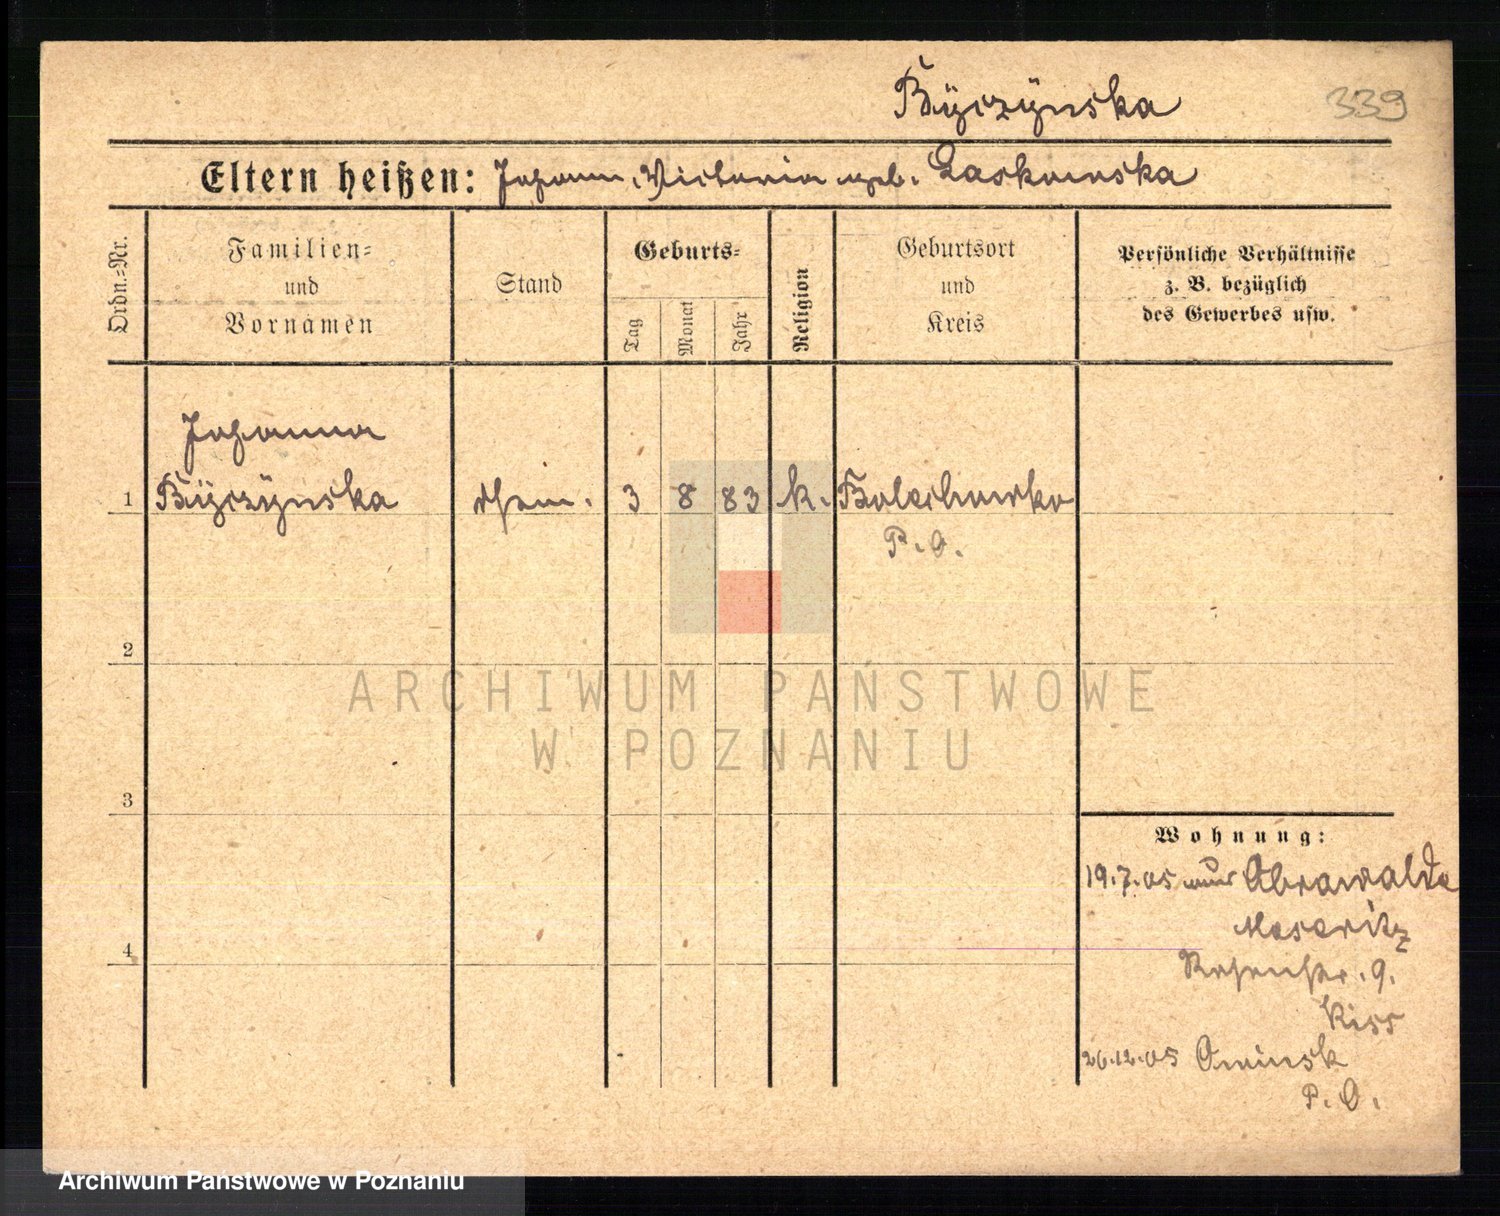 Byczynska
339
Eltern heißen: Johann, Victoria geb. Laskowska
Ordn.=Nr.
Familien=
und
Vornamen
Stand
Geburts=
Tag
Monat
Jahr
Religion
Geburtsort
und
Kreis
Persönliche Verhältnisse
z. B. bezüglich
des Gewerbes usw.
Johanna
1 Byczynska 3 8 83 k. Bolechowko
P. O.
2
ARCHIWUM PAŃSTWOWE
W POZNANIU
3
Wohnung:
19.7.05 Obrawalde
Meseritz
9.
Kiss
4
26.12.05 Owinsk
P. O.
Archiwum Państwowe w Poznaniu